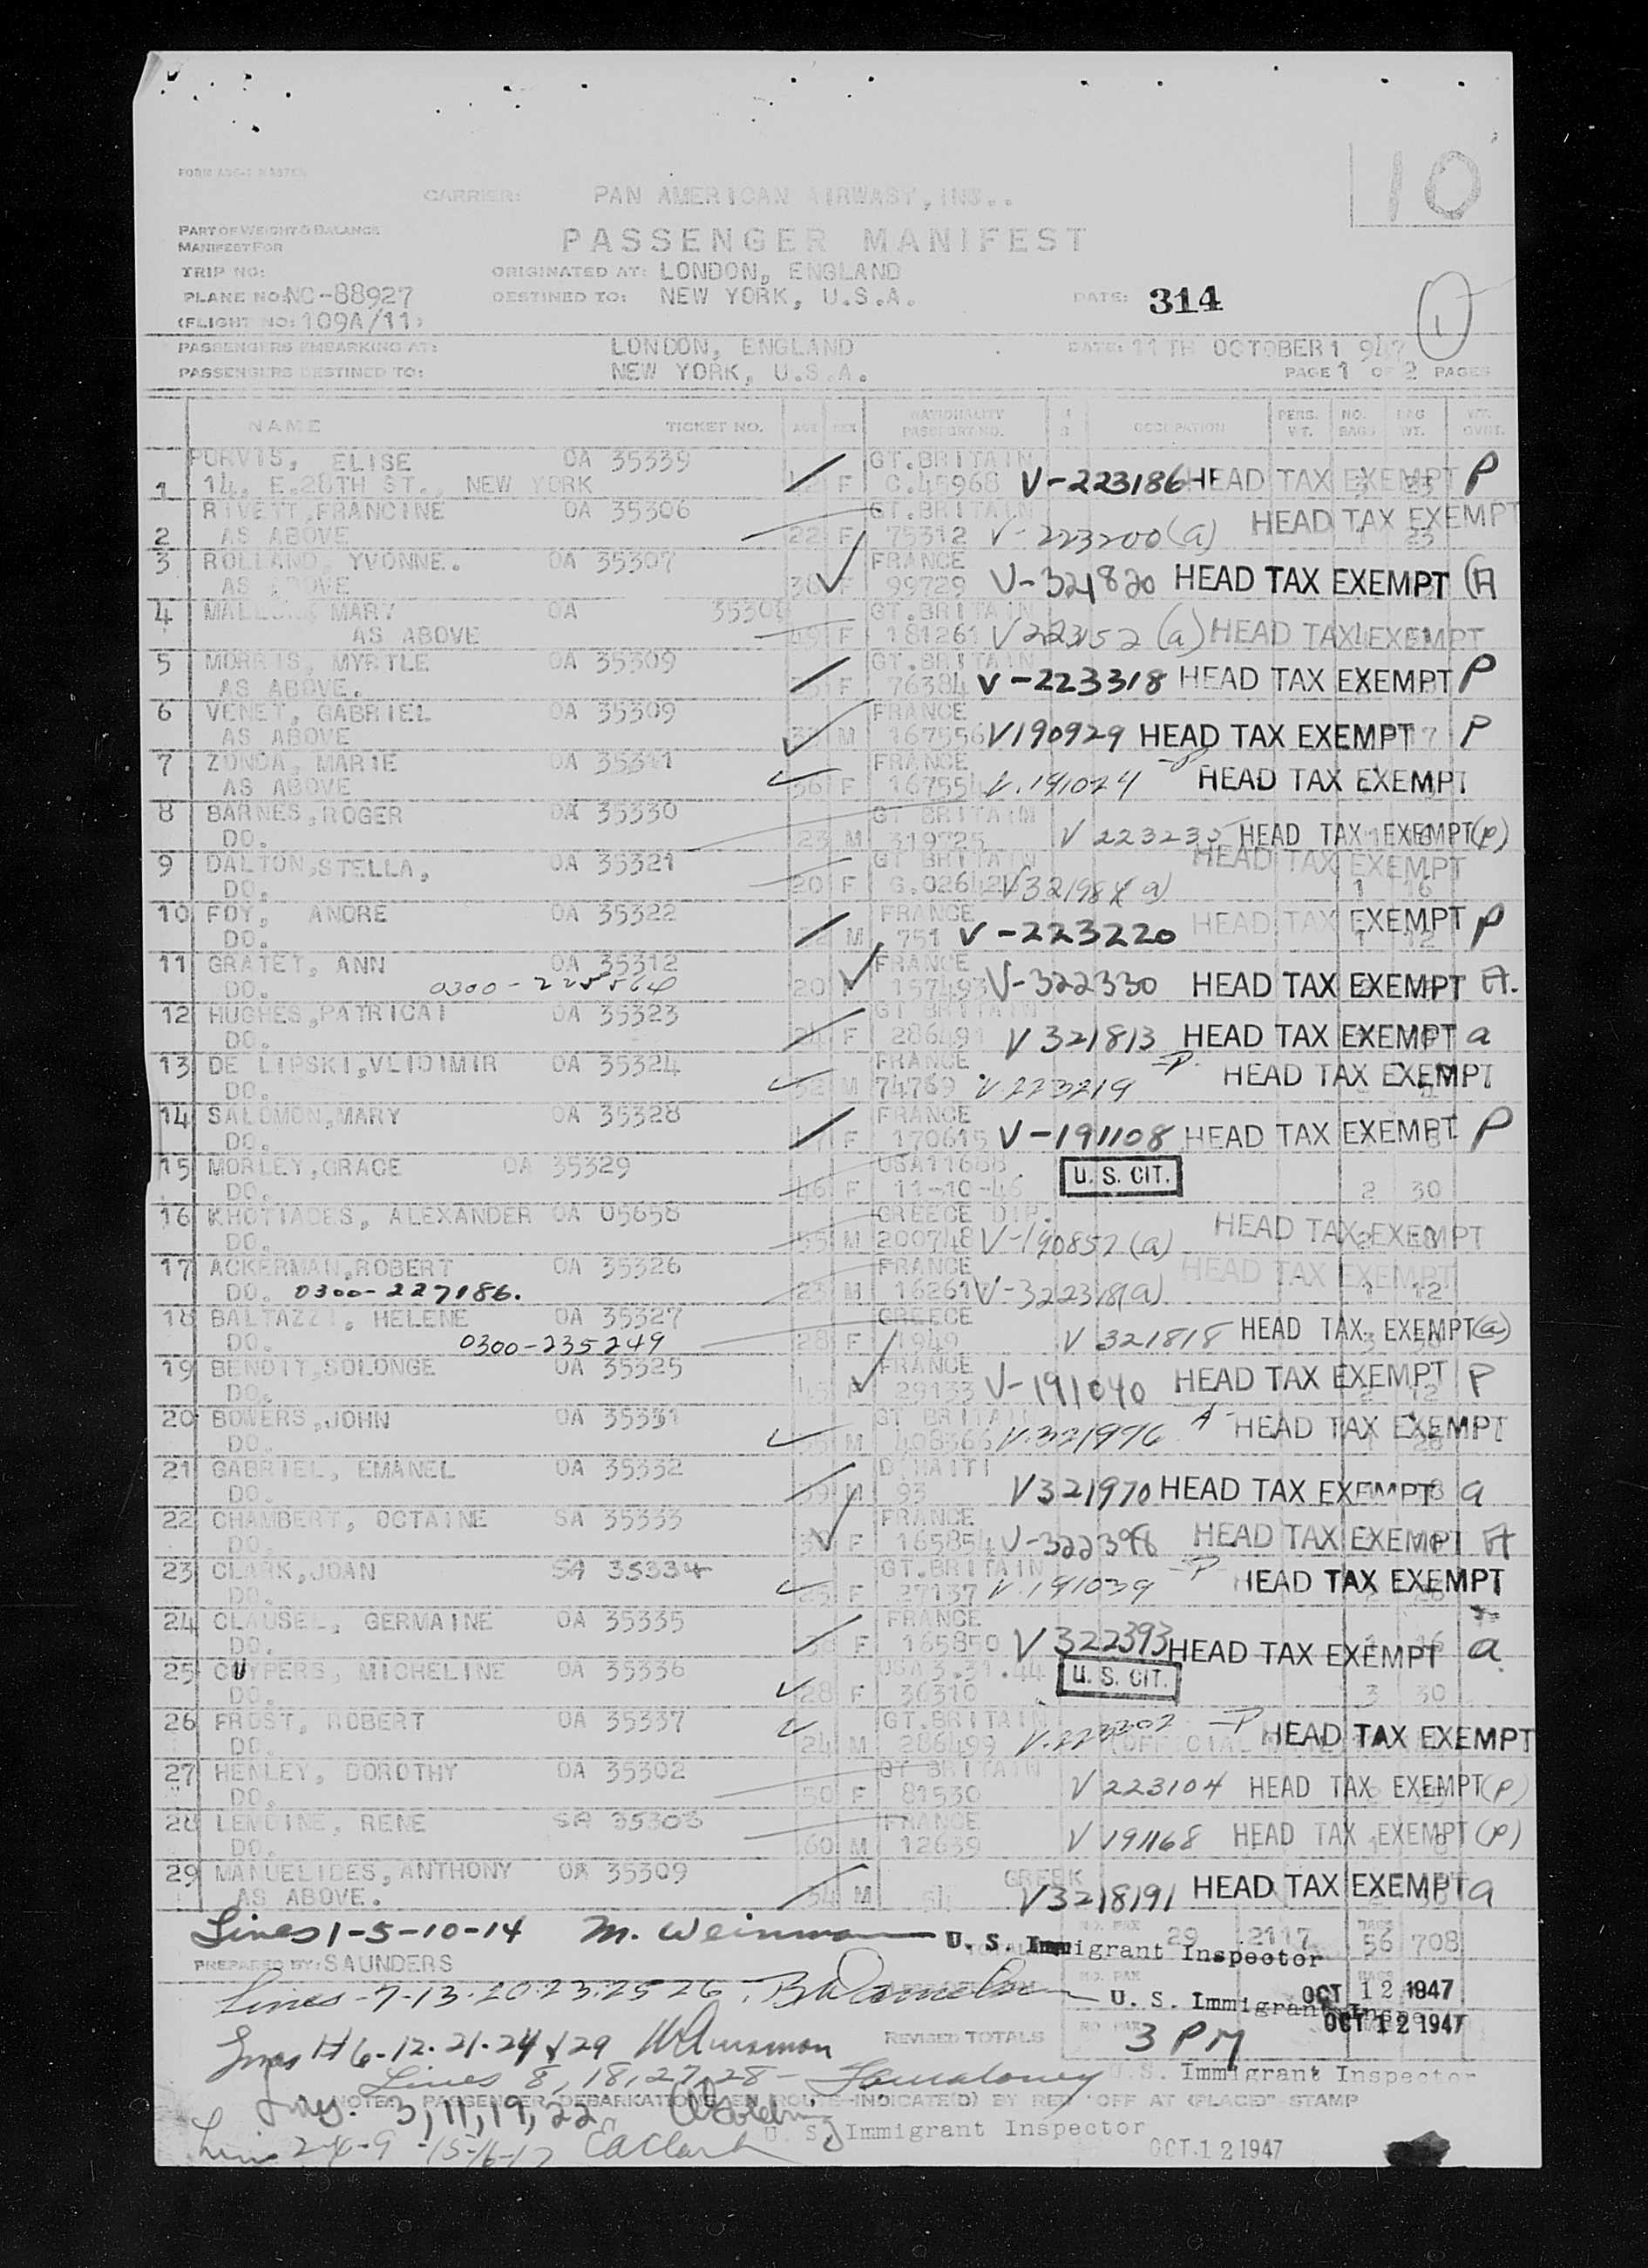 10
CARRIER: PAN AMERICAN AIRWASY, INS..
PART OF WEIGHT & BALANCE
MANIFEST FOR
PASSENGER MANIFEST
TRIP NO:
ORIGINATED AT: LONDON, ENGLAND
PLANE NO: NC-88927
DESTINED TO: NEW YORK, U.S.A.
DATE: 314
1
(FLIGHT NO: 109A/11)
PASSENGERS EMBARKING AT: LONDON, ENGLAND DATE: 11TH OCTOBER 1 947
PASSENGERS DESTINED TO: NEW YORK, U.S.A. PAGE 1 OF 2 PAGES
NAME TICKET NO. AGE SEX NATIONALITY PASSPORT NO. OCCUPATION PERS. WT. NO. BAGS BAG WT.
PURVIS, ELISE OA 35339 GT.BRITAIN
1 14. E.28TH ST., NEW YORK F V-223186 HEAD TAX EXEMPT P
RIVETT,FRANCINE OA 35306 GT.BRITAIN
2 AS ABOVE 22 F 75312 V-223200 (a) HEAD TAX EXEMPT 23
3 ROLLAND, YVONNE. OA 35307 FRANCE
AS ABOVE 99729 V-321820 HEAD TAX EXEMPT (A
4 MARY OA GT.BRITAIN
AS ABOVE 49 F 181261 V223152 (a) HEAD TAX EXEMPT
5 MORRIS, MYRTLE OA 35309 GT.BRITAIN
AS ABOVE. F 76384 V-223318 HEAD TAX EXEMPT P
6 VENET, GABRIEL OA 35309 FRANCE
AS ABOVE M 167556 V190929 HEAD TAX EXEMPT P
7 ZONCA, MARIE OA FRANCE
AS ABOVE 36 F V.191024 HEAD TAX EXEMPT
8 BARNES,ROGER OA 35330 GT BRITAIN
DO. 23 M 319725 V 223235 HEAD TAX EXEMPT (p)
9 DALTON,STELLA, OA 35321 GT BRITAIN HEAD TAX EXEMPT
DO. 20 F V321984 a) 1 16
10 FOY, ANDRE OA 35322 FRANCE
DO. M 751 V-223220 HEAD TAX EXEMPT P
11 GRATET, ANN OA 35312 FRANCE
DO. 20 157493 V-322330 HEAD TAX EXEMPT A.
12 HUGHES,PATRICAI OA 35323 GT BRITAIN
DO. F 286491 V 321813 HEAD TAX EXEMPT a
13 DE LIPSKI,VLIDIMIR OA 35324 FRANCE
DO. M 74769 V.223219 P HEAD TAX EXEMPT
14 SALOMON,MARY OA 35328 FRANCE
DO. F 170615 V-191108 HEAD TAX EXEMPT P
15 MORLEY,GRACE OA 35329 U. S. CIT.
DO. 46 F 11-10-46 2 30
16 KHOTIADES, ALEXANDER OA 05658 GREECE DIP.
DO. 55 M 200748 V-190852 (a) HEAD TAX EXEMPT
17 ACKERMAN,ROBERT OA 35326 FRANCE HEAD TAX EXEMPT
DO. 0300-227186. 23 M V-322318(a) 1 12
18 BALTAZZI, HELENE OA 35327 GREECE
DO. 0300-235249 28 F 1949 V 321818 HEAD TAX EXEMPT (a)
19 BENOIT,SOLONGE OA 35325 FRANCE
DO. 29133 V-191040 HEAD TAX EXEMPT P
20 BOWERS,JOHN OA 35331
DO. M 408366 V.321976 A HEAD TAX EXEMPT
21 GABRIEL, EMANEL OA 35332 D.HAITI
DO. 39 M 93 V321970 HEAD TAX EXEMPT a
22 CHAMBERT, OCTAINE SA 35333 FRANCE
DO. F 165854 V-322398 HEAD TAX EXEMPT A
23 CLARK,JOAN SA 35334 GT.BRITAIN
DO. F 27137 V.191039 P HEAD TAX EXEMPT
24 CLAUSEL, GERMAINE OA 35335 FRANCE
DO. F 165850 V 322393 HEAD TAX EXEMPT a
25 CUYPERS, MICHELINE OA 35336 USA 3.31.44 U. S. CIT.
DO. 28 F 36310 3 30
26 FROST, ROBERT OA 35337 GT.BRITAIN
DO. 24 M 286499 P HEAD TAX EXEMPT
27 HENLEY, DOROTHY OA 35302 GT BRITAIN
DO. 50 F 81530 V 223104 HEAD TAX EXEMPT (P)
28 LEMOINE, RENE SA FRANCE
DO. 60 M 12639 V 191168 HEAD TAX EXEMPT (P)
29 MANUELIDES, ANTHONY OA 35309 GREEK
AS ABOVE. 54 M V3218191 HEAD TAX EXEMPT a
Lines 1-5-10-14 M. Weinman U. S. Immigrant Inspector 29 2117 56 708
PREPARED BY: SAUNDERS
Lines-7-13-20-23-25-26. U. S. Immigrant Inspector OCT 12 1947
OCT 12 1947
Lines # 6-12-21-24 & 29 REVISED TOTALS 3 PM
Lines 8, 18, 27, 28 - U. S. Immigrant Inspector
NOTE: PASSENGER DEBARKATIONS EN ROUTE INDICATE(D) BY RED "OFF AT (PLACE)" STAMP
Lines. 3, 11, 19, 22
U. S. Immigrant Inspector
Lines 2-4-9-15-16-17 EA Clark OCT 12 1947